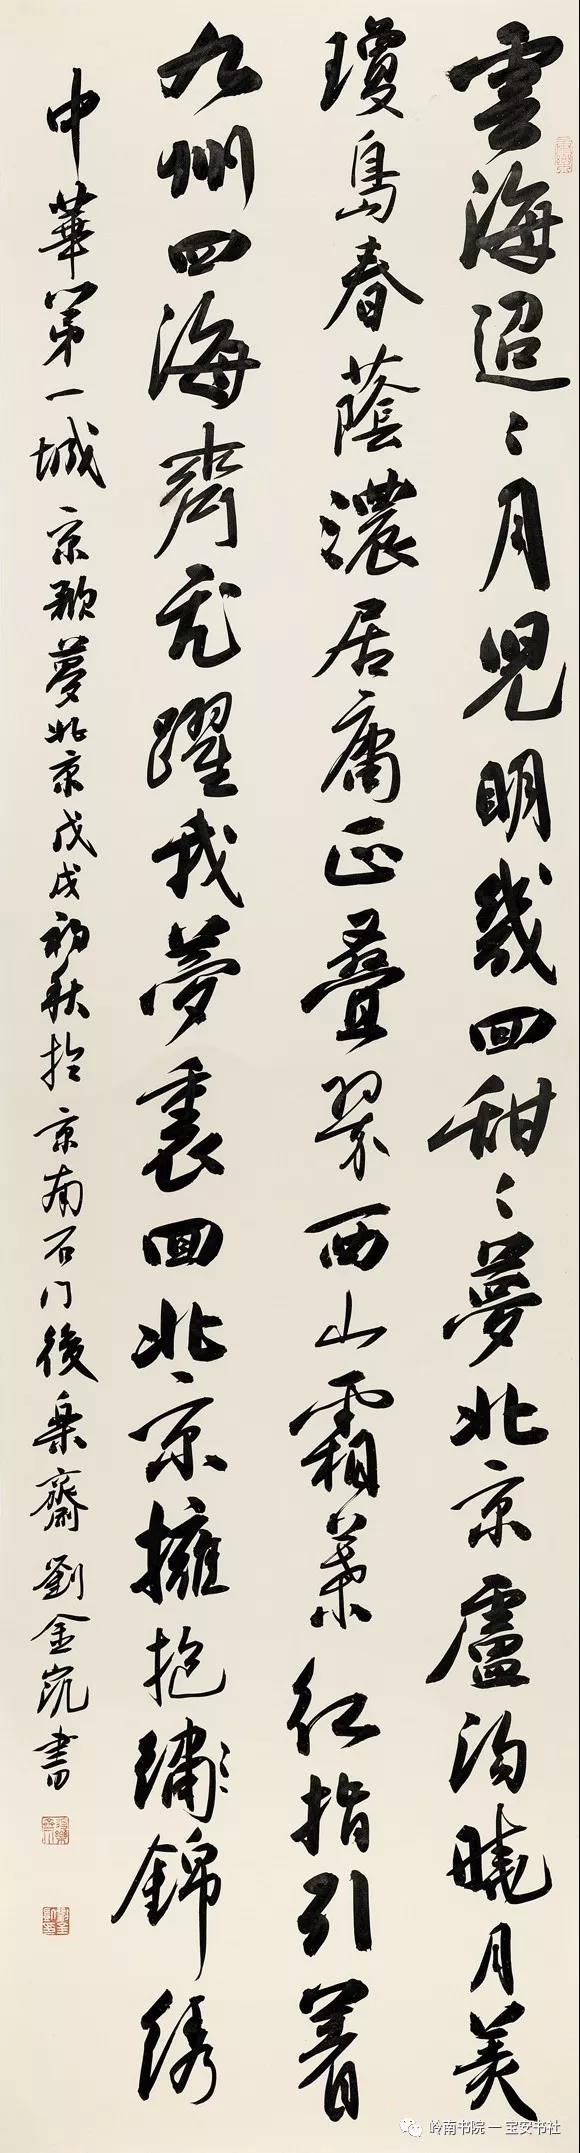 雲海迢〻月兒明幾回甜〻夢北京盧沟曉月美
瓊島春蔭濃居庸正叠翠西山霜葉紅指引着
九州四海齊飛躍我夢裏回北京擁抱錦绣
中華第一城 京歌夢北京戊戌初秋於京南石门後樂齋劉金凱書
岭南书院 — 宝安书社